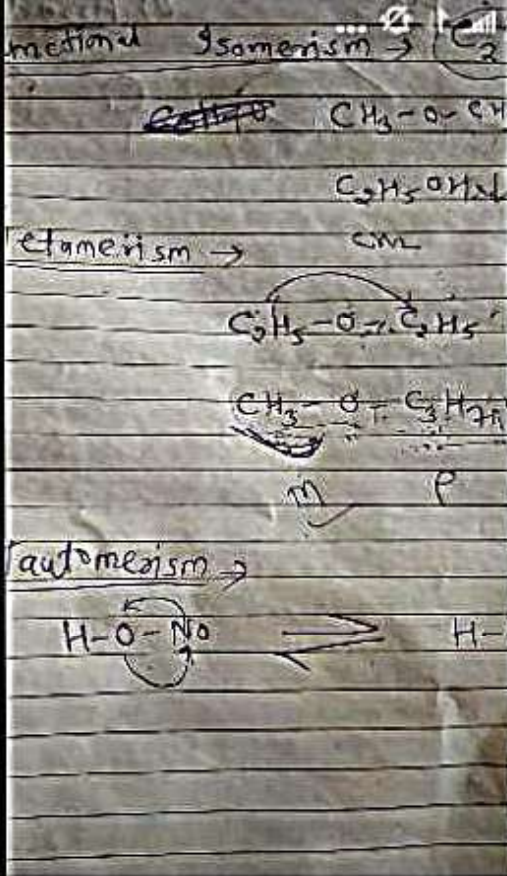 nctional Isomerism → C2
CH3-O-CH
C2H5OH
etamerism →
C2H5-O-C2H5
CH3-O-C3H7
m P
automerism →
H-O-NO ⇌ H-